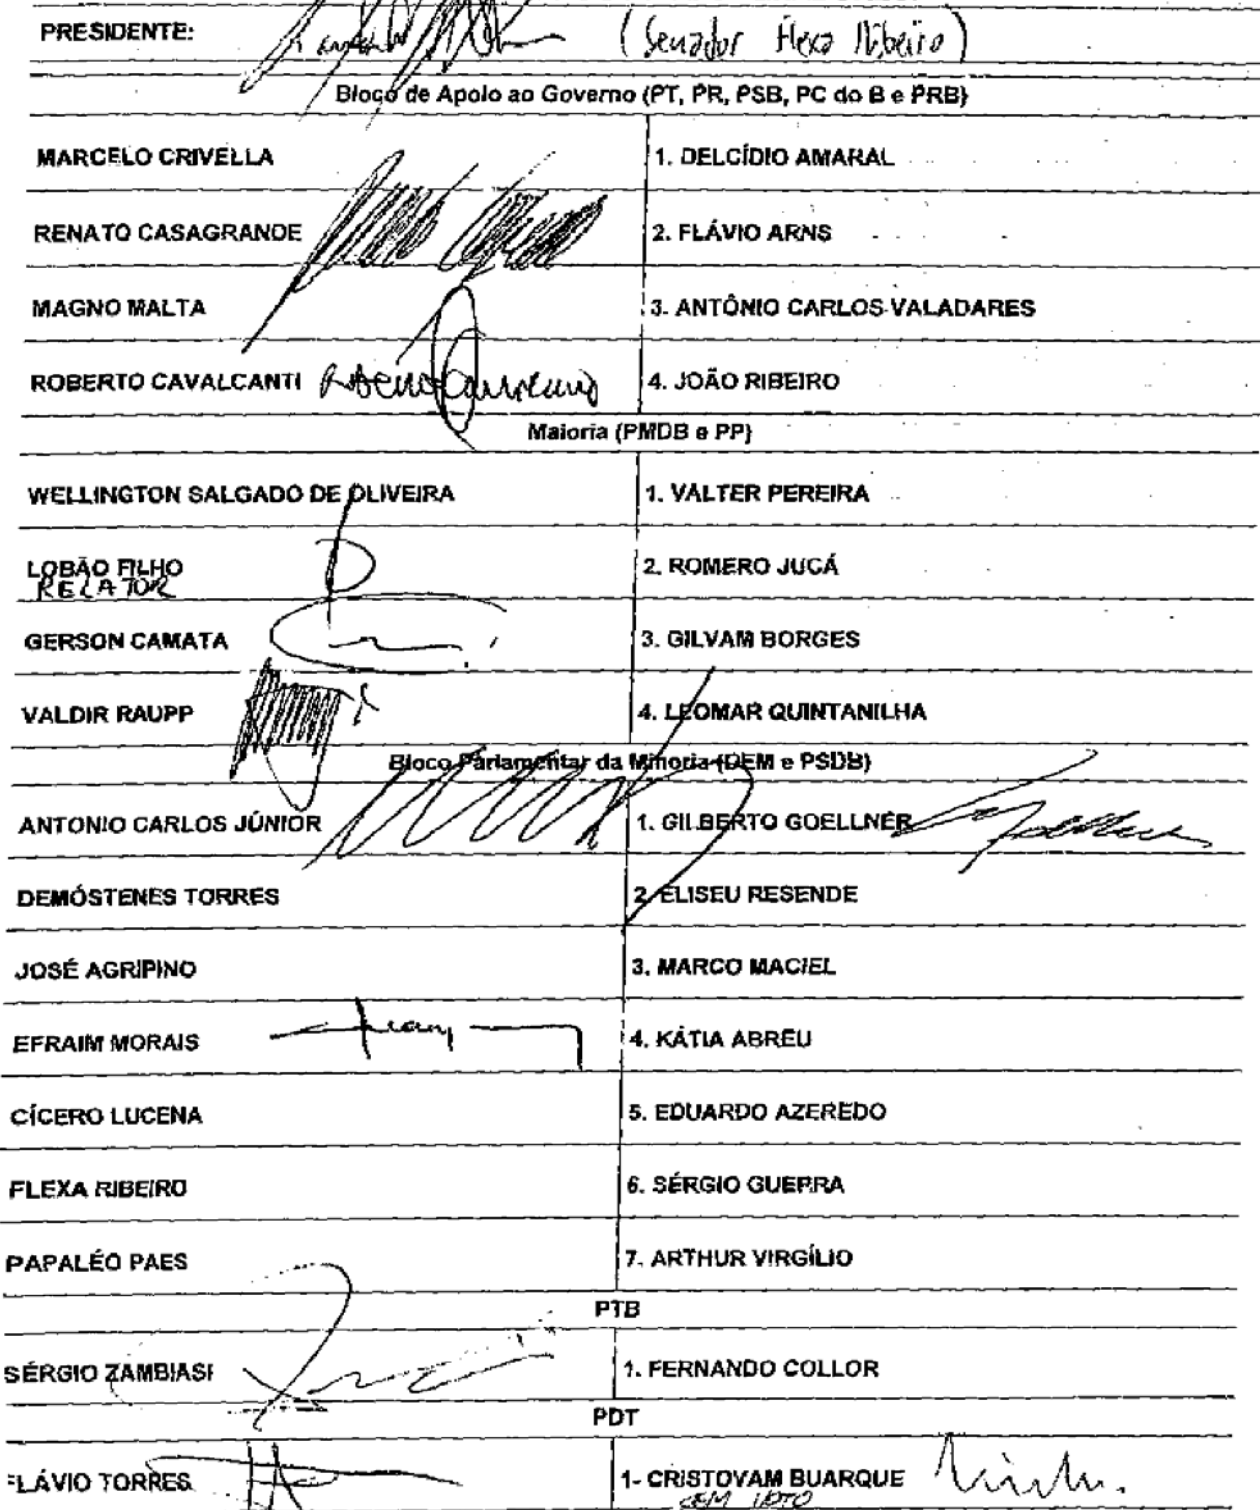 PRESIDENTE: (Senador Flexa Ribeiro)
Bloco de Apoio ao Governo (PT, PR, PSB, PC do B e PRB)
MARCELO CRIVELLA 1. DELCÍDIO AMARAL
RENATO CASAGRANDE 2. FLÁVIO ARNS
MAGNO MALTA 3. ANTÔNIO CARLOS VALADARES
ROBERTO CAVALCANTI 4. JOÃO RIBEIRO
Maioria (PMDB e PP)
WELLINGTON SALGADO DE OLIVEIRA 1. VALTER PEREIRA
LOBÃO FILHO 2. ROMERO JUCÁ
RELATOR
GERSON CAMATA 3. GILVAM BORGES
VALDIR RAUPP 4. LEOMAR QUINTANILHA
Bloco Parlamentar da Minoria (DEM e PSDB)
ANTONIO CARLOS JÚNIOR 1. GILBERTO GOELLNER
DEMÓSTENES TORRES 2. ELISEU RESENDE
JOSÉ AGRIPINO 3. MARCO MACIEL
EFRAIM MORAIS 4. KÁTIA ABREU
CÍCERO LUCENA 5. EDUARDO AZEREDO
FLEXA RIBEIRO 6. SÉRGIO GUERRA
PAPALÉO PAES 7. ARTHUR VIRGÍLIO
PTB
SÉRGIO ZAMBIASI 1. FERNANDO COLLOR
PDT
FLÁVIO TORRES 1- CRISTOVAM BUARQUE